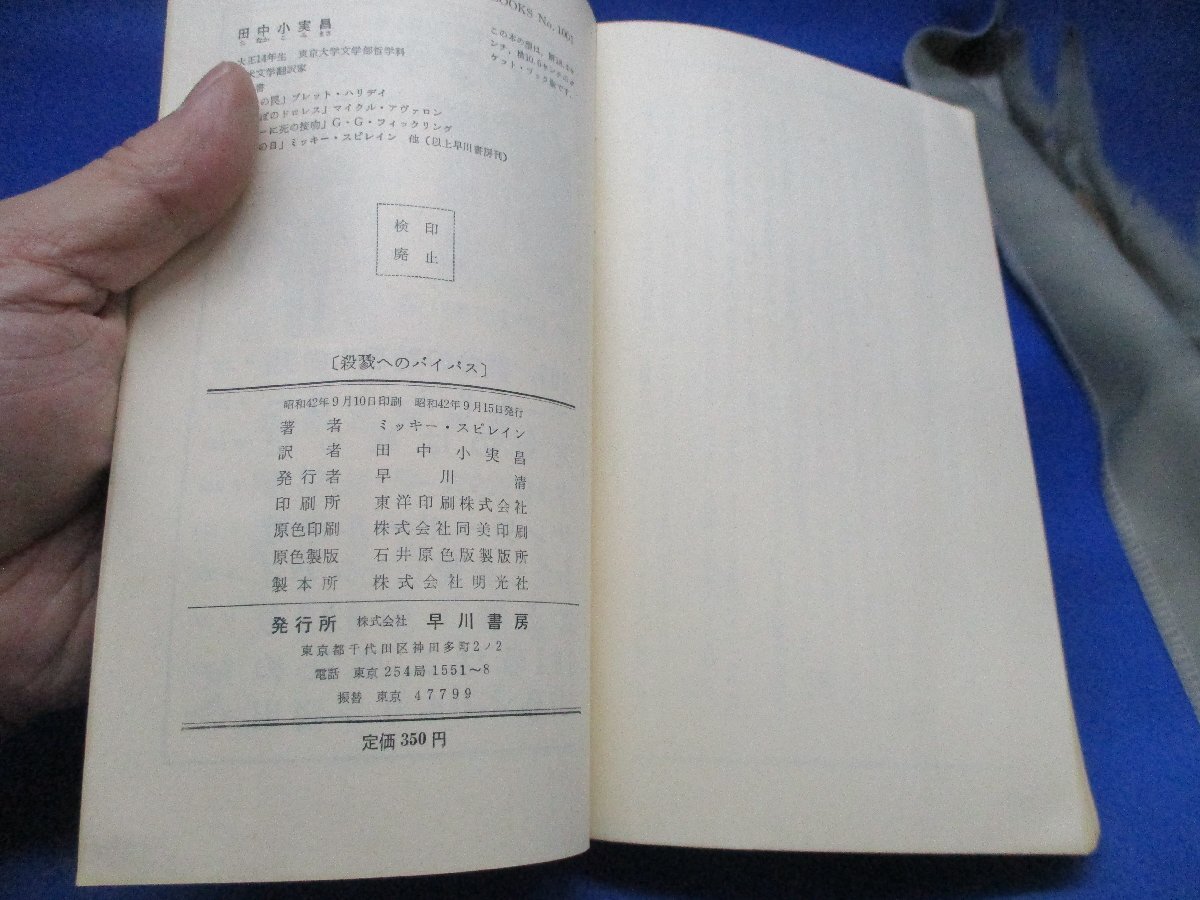 BOOKS No. 100
この本の型は、
ケット・ブック版です。
田中小実昌
大正14年生 東京大学文学部哲学科
文学翻訳家
書
の罠」ブレット・ハリデイ
ばのドロレス」マイクル・アヴァロン
ーに死の接吻」G・G・フィックリング
の日」ミッキー・スピレイン 他(以上早川書房刊)
検印
廃止
〔殺戮へのバイパス〕
昭和42年9月10日印刷 昭和42年9月15日発行
著者 ミッキー・スピレイン
訳者 田中小実昌
発行者 早川清
印刷所 東洋印刷株式会社
原色印刷 株式会社同美印刷
原色製版 石井原色版製版所
製本所 株式会社明光社
発行所 株式会社 早川書房
東京都千代田区神田多町2ノ2
電話 東京 254局 1551〜8
振替 東京 47799
定価 350 円